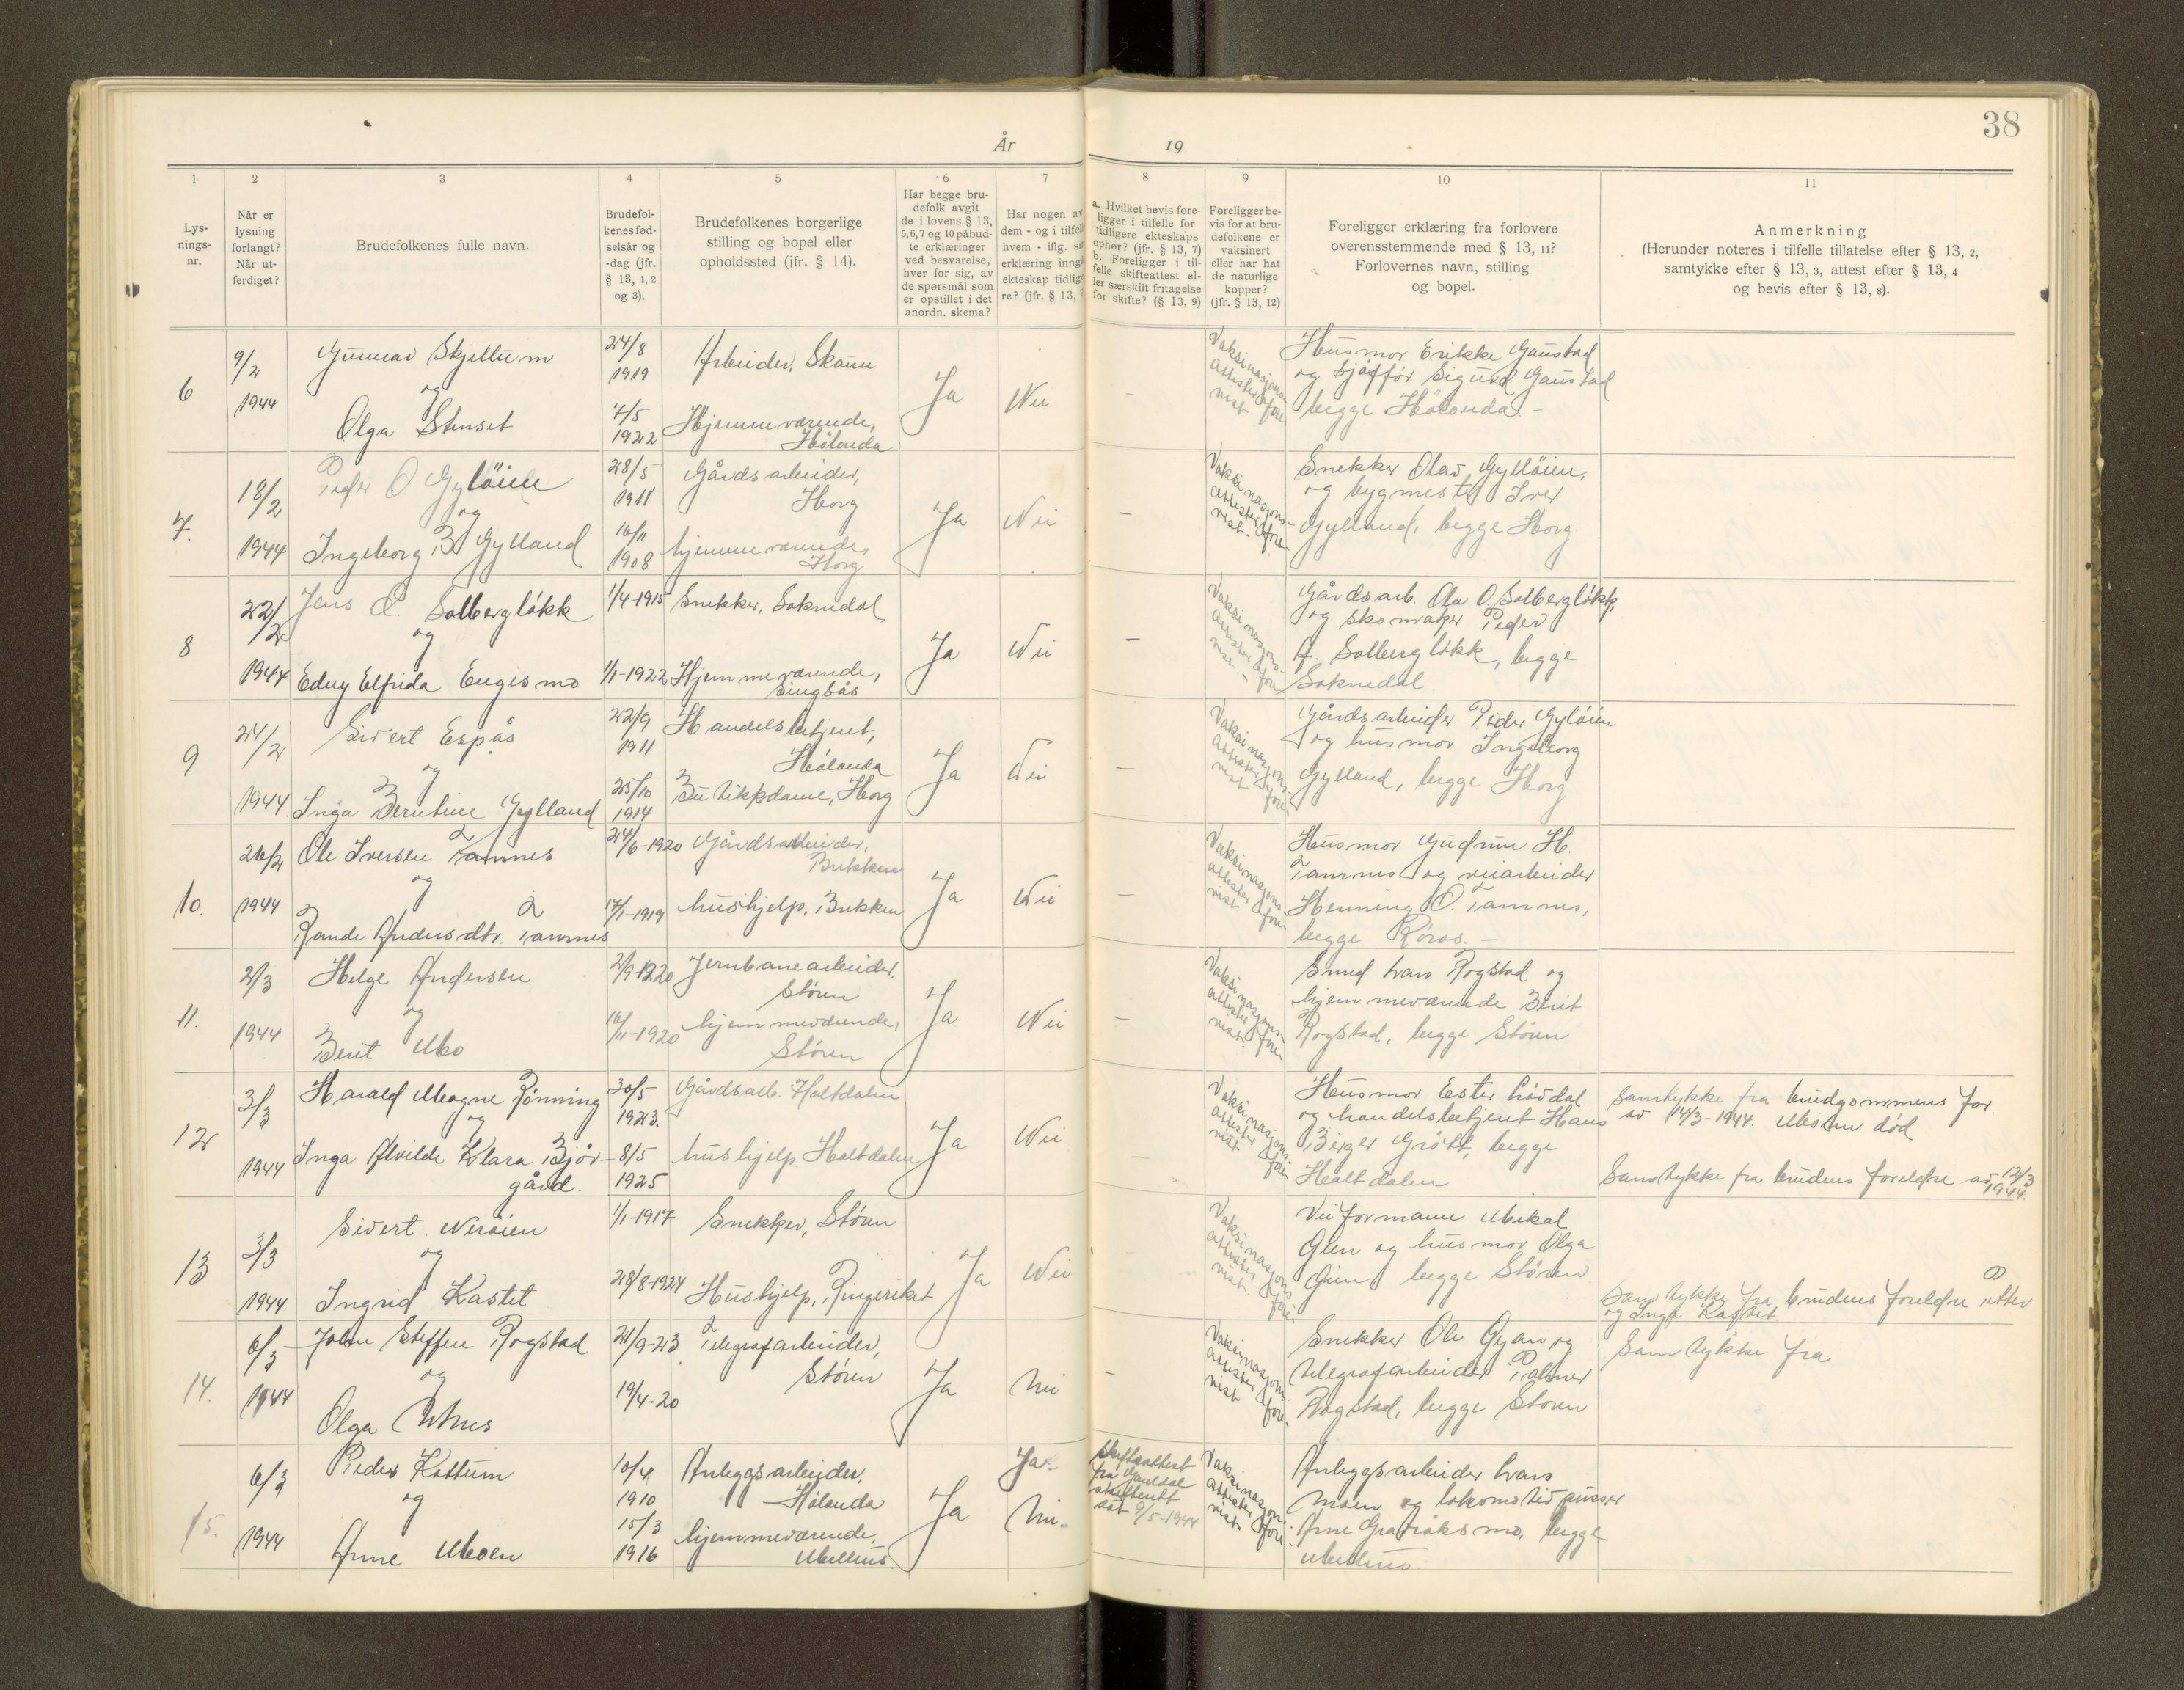 38
År
19
1
Lys-
nings-
nr.
2
Når er
lysning
forlangt?
Når ut-
ferdiget?
3
Brudefolkenes fulle navn.
4
Brudefol-
kenes fød-
selsår og
-dag (jfr.
§ 13, 1, 2
og 3).
5
Brudefolkenes borgerlige
stilling og bopel eller
opholdssted (jfr. § 14).
6
Har begge bru-
defolk avgit
de i lovens § 13,
5, 6, 7 og 10 påbud-
te erklæringer
ved besvarelse,
hver for sig, av
de spørsmål som
er opstillet i det
anordn. skema?
7
Har nogen av
dem - og i tilfel
hvem - iflg. si
erklæring inng
ekteskap tidlig
re? (jfr. § 13,
8
a. Hvilket bevis fore-
ligger i tilfelle for
tidligere ekteskaps
ophør? (jfr. § 13, 7)
b. Foreligger i til-
felle skifteattest el-
ler særskilt fritagelse
for skifte? (§ 13, 9)
9
Foreligger be-
vis for at bru-
defolkene er
vaksinert
eller har hat
de naturlige
kopper?
(jfr. § 13, 12)
10
Foreligger erklæring fra forlovere
overensstemmende med § 13, 11?
Forlovernes navn, stilling
og bopel.
11
Anmerkning
(Herunder noteres i tilfelle tillatelse efter § 13, 2,
samtykke efter § 13, 3, attest efter § 13, 4
og bevis efter § 13, 8).
6
9/2
1944
Gunnar Skjellum
og
Olga Stenset
24/8
1919
7/5
1922
Arbeider, Skaun
Hjemmeværende,
Hølonda
Ja
Nei
-
Vaksinasjons-
attester fore-
vist
Husmor Erikke Gaustad
og sjåffør Sigurd Gaustad
begge Hølonda. -
7.
18/2
1944
Peder O Gylöien
og
Ingeborg B Gylland
28/5
1911
16/11
1908
Gårdsarbeider,
Horg
hjemmeværende,
Horg
Ja
Nei
-
Vaksinasjons-
attester fore-
vist.
Snekker Olav Gyllöien,
og bygmester Iver
Gylland, begge Horg
8
22/2
1944
Jens O. Solbergløkk
og
Edny Elfrida Engesmo
1/4-1915
1/1-1922
Snekker, Soknedal
Hjemmeværende,
Singsås
Ja
Nei
-
Vaksinasjons-
attester fore-
vist -
Gårdsarb. Ola O. Solbergløkk,
og skomaker Peder
A. Solbergløkk, begge
Soknedal
9
24/2
1944.
Sivert Espås
og
Inga Berntine Gylland
22/9
1911
25/10
1914
Handelsbetjent,
Hølonda
Butikkdame, Horg
Ja
Nei
-
Vaksinasjons-
attester fore-
vist
Gårdsarbeider Peder Gylöien
og husmor Ingeborg
Gylland, begge Horg
10.
26/2
1944
Ole Iversen Tamnes
og
Rande Andersdtr. Tamnes
24/6-1920
17/1-1919
Gårdsarbeider,
Brekken
hushjelp, Brekken
Ja
Nei
-
Vaksinasjons-
attester fore-
vist
Husmor Gudrun H.
Tamnes og veiarbeider
Henning O. Tamnes,
begge Røros. -
11.
2/3
1944
Helge Andersen
og
Berit Mo
2/9-1920
16/11-1920
Jernbanearbeider,
Støren
hjemmeværende,
Støren
Ja
Nei
-
Vaksinasjons-
attester fore-
vist.
Smed Lars Rogstad og
hjemmeværende Berit
Rogstad, begge Støren
12
3/3
1944
Harald Magne Rønning
og
Inga Alvilde Klara Bjør-
gård.
30/5
1923.
8/5
1925
Gårdsarb. Haltdalen
hushjelp Haltdalen
Ja
Nei
-
Vaksinasjons-
attester fore-
vist
Husmor Ester Løvdal
og handelsbetjent Hans
Birger Grøtt, begge
Haltdalen
Samtykke fra brudgommens far
av 14/3-1944. Moren død
Samtykke fra brudens foreldre av 12/3
1944.
13
3/3
1944
Sivert Nerøien
og
Ingrid Kastet
1/1-1917
28/8-1924
Snekker, Støren
Hushjelp, Ringeriket
Ja
Nei
Vaksinasjons-
attester fore-
vist.
Veiformann Mikal
Glen og husmor Olga
begge Støren.
Samtykke fra brudens foreldre
og Inga Kastet.
14.
6/3
1944
John Steffen Rogstad
og
Olga
21/9-23
19/4-20
Telegrafarbeider,
Støren
Ja
Nei
-
Vaksinasjons-
attester fore-
vist
Snekker Ole Gyan og
telegrafarbeider Palmer
Rogstad, begge Støren
Samtykke fra
15.
6/3
1944
Peder Kottum
og
Anne Moen
10/4
1910
15/3
1916
Anleggsarbeider,
Hølonda
hjemmeværende,
Melhus.
Ja
Ja.
Nei.
Skifteattest
fra Gauldal
skifterett
dat 9/5-1944
Vaksinasjons-
attester fore-
vist.
Anleggsarbeider Lars
Moen og lokomotivpusser
Arne Gravråksmo, begge
Melhus.